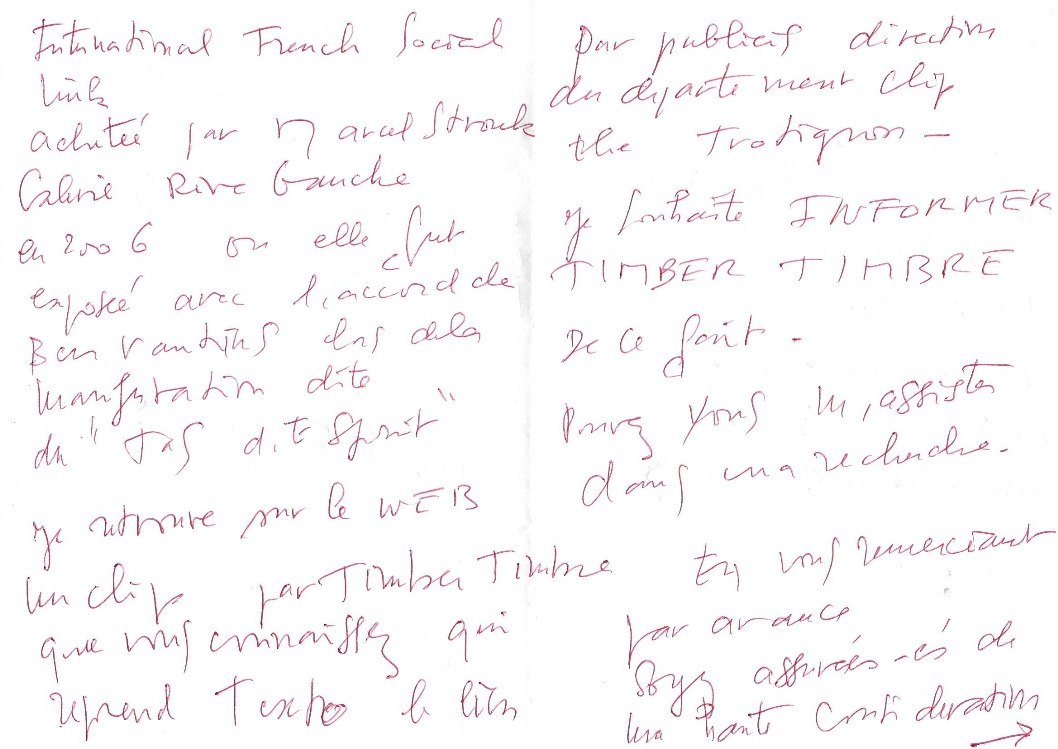 International French Social
link
achetée par Marcel Strouk
Galerie Rive Gauche
en 2006 ou elle fut
exposée avec l'accord de
Ben Vautiers lors de la
manifestation dite
du "Tas d'Esprit"
Je retrouve sur le WEB
un clip par Timber Timbre
que vous connaissez qui
reprend Texto le lien
par publicis direction
du departement clip
the Trotignon -
je souhaite INFORMER
TIMBER TIMBRE
De ce fait -
Pouvez vous m'assister
dans ma recherche -
En vous remerciant
par avance
Soyez assurés-és de
ma haute considération